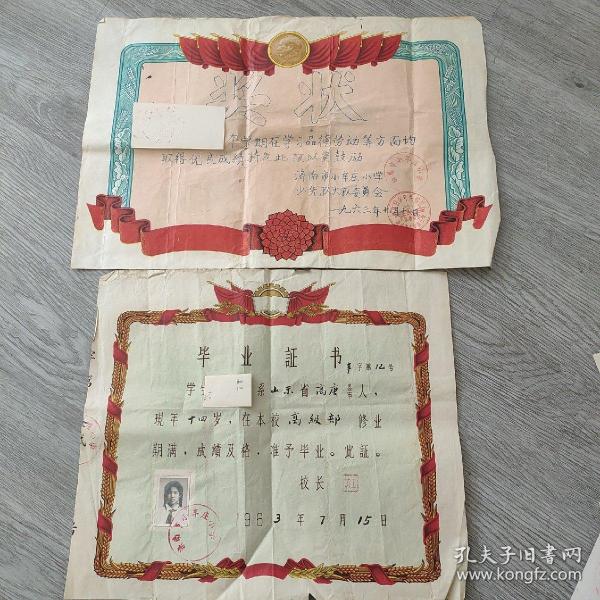 奖状
在学期在学习品德劳动等方面均
取得优良成绩特发此状以资鼓励
济南市 小学
少先队大队委员会
一九六三年 月 日
毕业証书
字第12号
学生 系山东省高唐县人，
现年十四岁，在本校高级部修业
期满，成绩及格，准予毕业。此証。
校长
1963年7月15日
孔夫子旧书网
www.kongfz.com